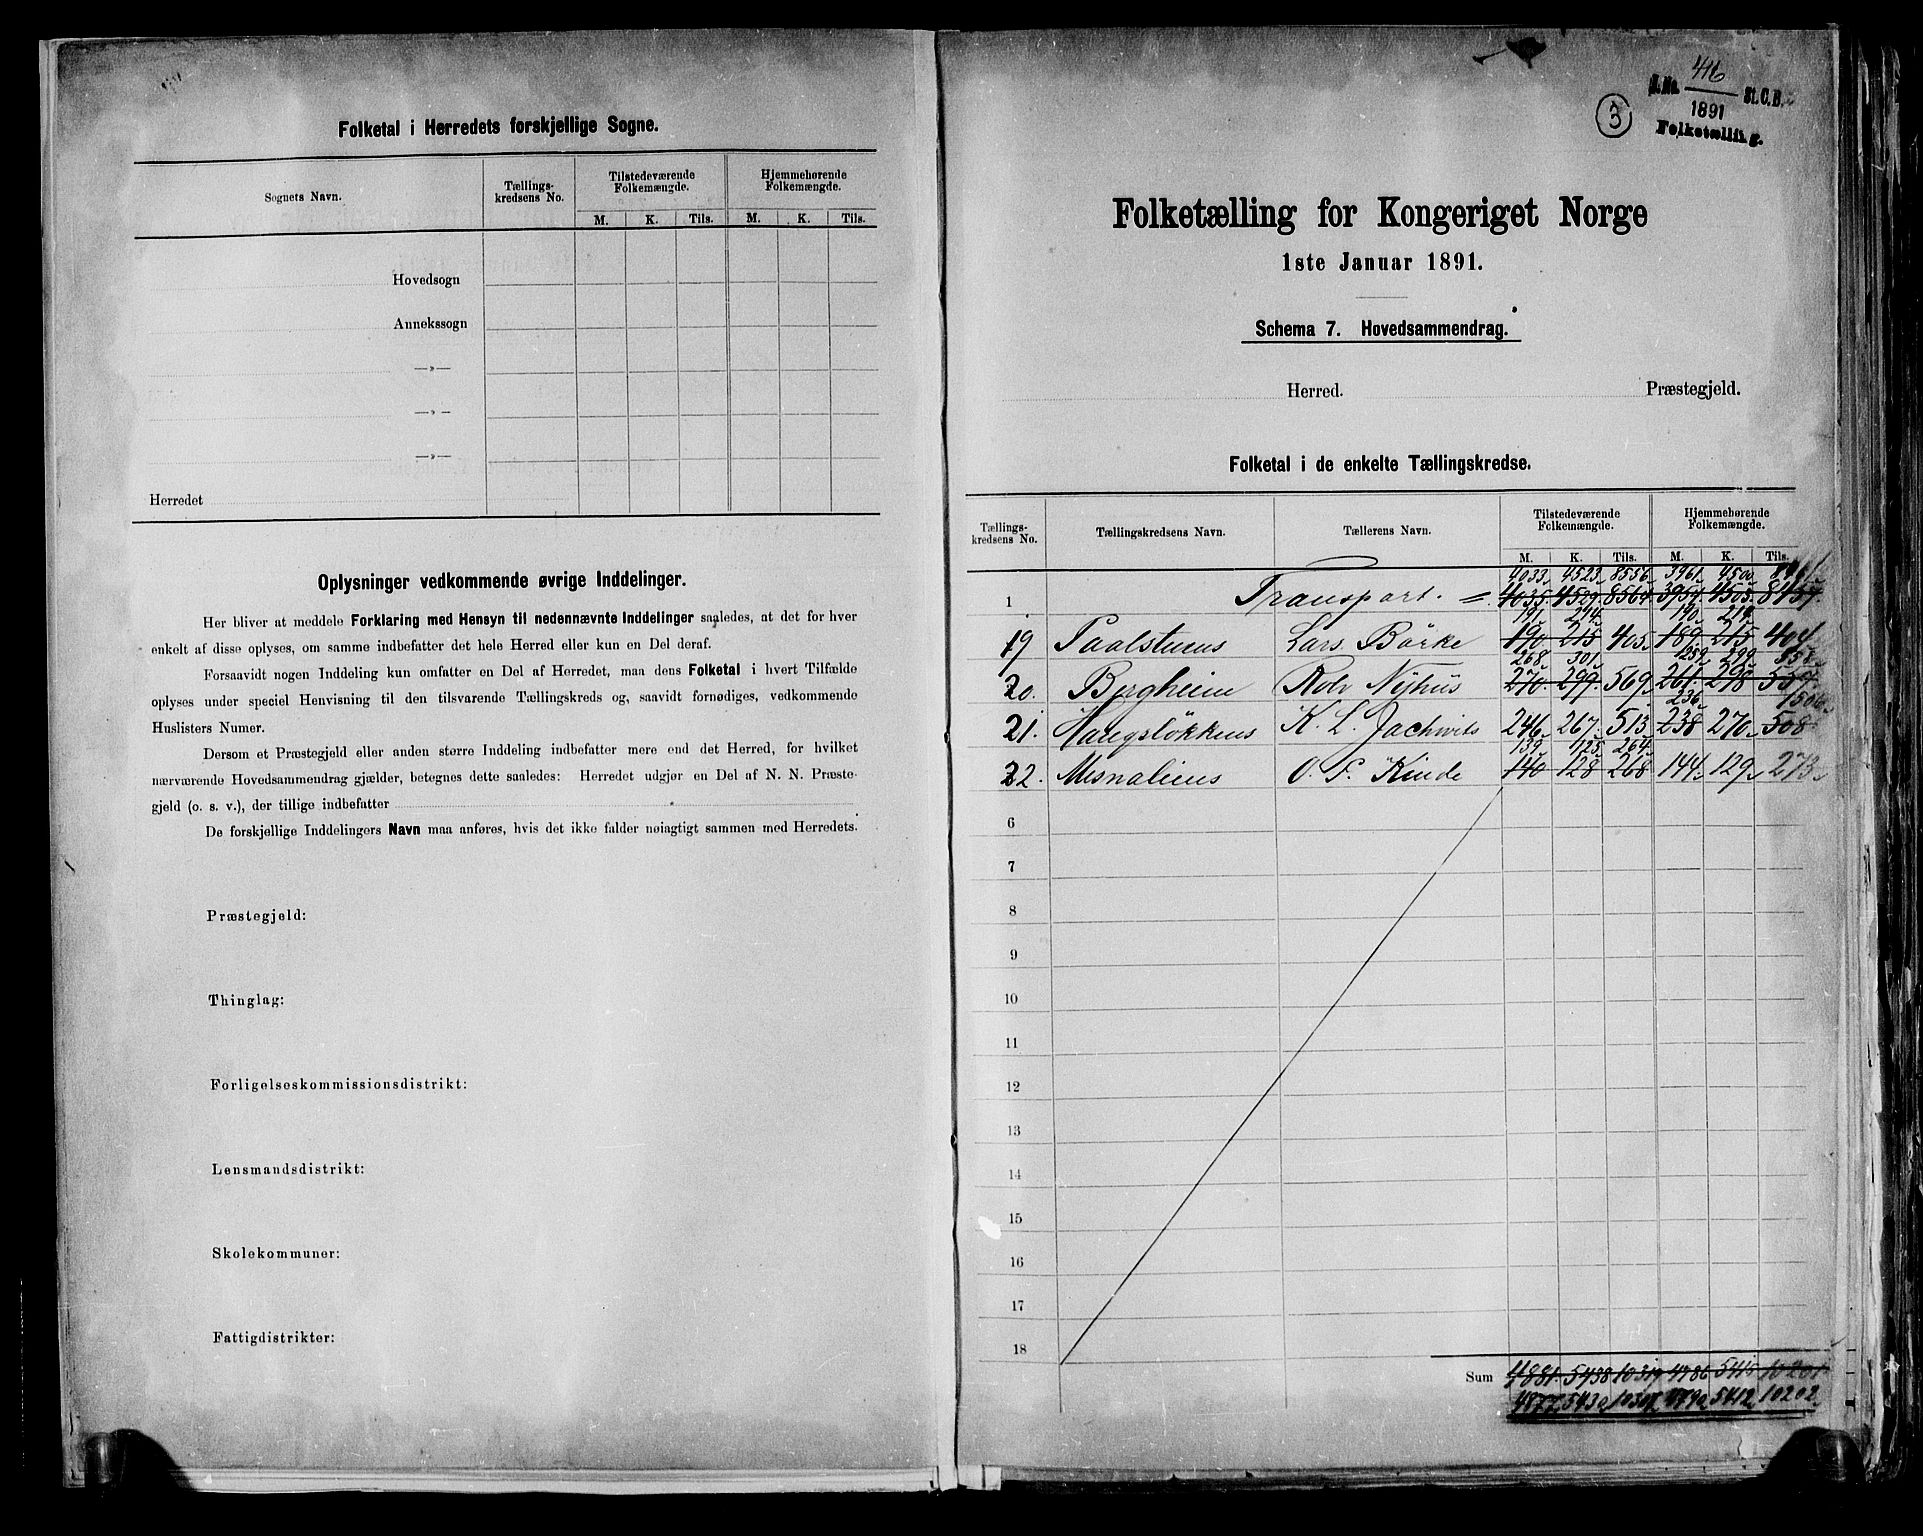 Folketal i Herredets forskjellige Sogne.
Sognets Navn.
Tællings-
kredsens No.
Tilstedeværende
Folkemængde.
Hjemmehørende
Folkemængde.
M. K. Tils. M. K. Tils.
Hovedsogn
Annekssogn
—»—
—»—
—»—
Herredet
Oplysninger vedkommende øvrige Inddelinger.
Her bliver at meddele Forklaring med Hensyn til nedennævnte Inddelinger saaledes, at det for hver
enkelt af disse oplyses, om samme indbefatter det hele Herred eller kun en Del deraf.
Forsaavidt nogen Inddeling kun omfatter en Del af Herredet, maa dens Folketal i hvert Tilfælde
oplyses under speciel Henvisning til den tilsvarende Tællingskreds og, saavidt fornødiges, vedkommende
Huslisters Numer.
Dersom et Præstegjeld eller anden større Inddeling indbefatter mere end det Herred, for hvilket
nærværende Hovedsammendrag gjælder, betegnes dette saaledes: Herredet udgjør en Del af N. N. Præste-
gjeld (o. s. v.), der tillige indbefatter
De forskjellige Inddelingers Navn maa anføres, hvis det ikke falder nøiagtigt sammen med Herredets.
Præstegjeld:
Thinglag:
Forligelseskommissionsdistrikt:
Lensmandsdistrikt:
Skolekommuner:
Fattigdistrikter:
3
J. No. 416 St. C. B.
1891
Folketælling.
Folketælling for Kongeriget Norge
1ste Januar 1891.
Schema 7. Hovedsammendrag.
Herred. Præstegjeld.
Folketal i de enkelte Tællingskredse.
Tællings-
kredsens No.
Tællingskredsens Navn.
Tællerens Navn.
Tilstedeværende
Folkemængde.
Hjemmehørende
Folkemængde.
M. K. Tils. M. K. Tils.
4033 4523 8556 3961 4500
1 Transport. = 4035 4529 8564 3954 4505 8459
191 214 190 214
19 Lars Börke 190 215 405 189 215 404
268 301 259 299 558
20. Bergheim Rolv Nyhus 270 299 569 261 298 559
236 506
21. K. L. 246 267 513 238 270 508
139 125 264
22. O. P. 140 128 268 144 129 273
6
7
8
9
10
11
12
13
14
15
16
17
18
Sum 4881 5438 10319 4786 5415 10201
4877 5430 10307 4790 5412 10202